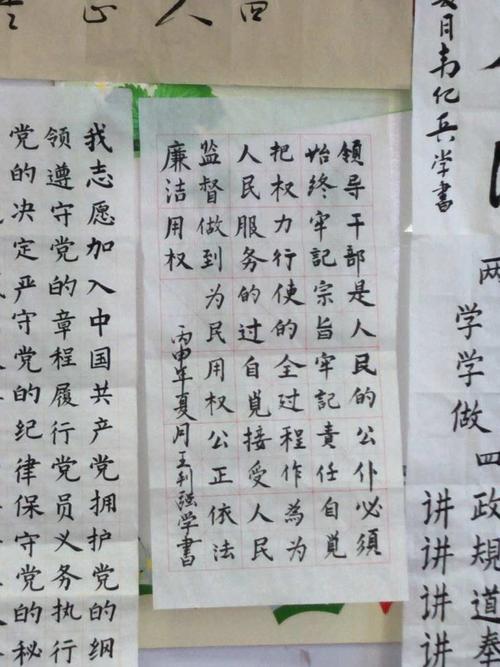 夏月韦亿兵学書
两
学学做
四
政规道奉
讲讲讲讲
领导干部是人民的公仆必须
始终牢記宗旨牢記責任自覚
把权力行使的全过程作為为
人民服务的过自覚接受人民
监督做到为民用权公正依法
廉洁用权
丙申年夏月王利强学書
我志愿加入中国共产党拥护党的纲
领遵守党的章程履行党员义务执行
党的决定严守党的纪律保守党的秘